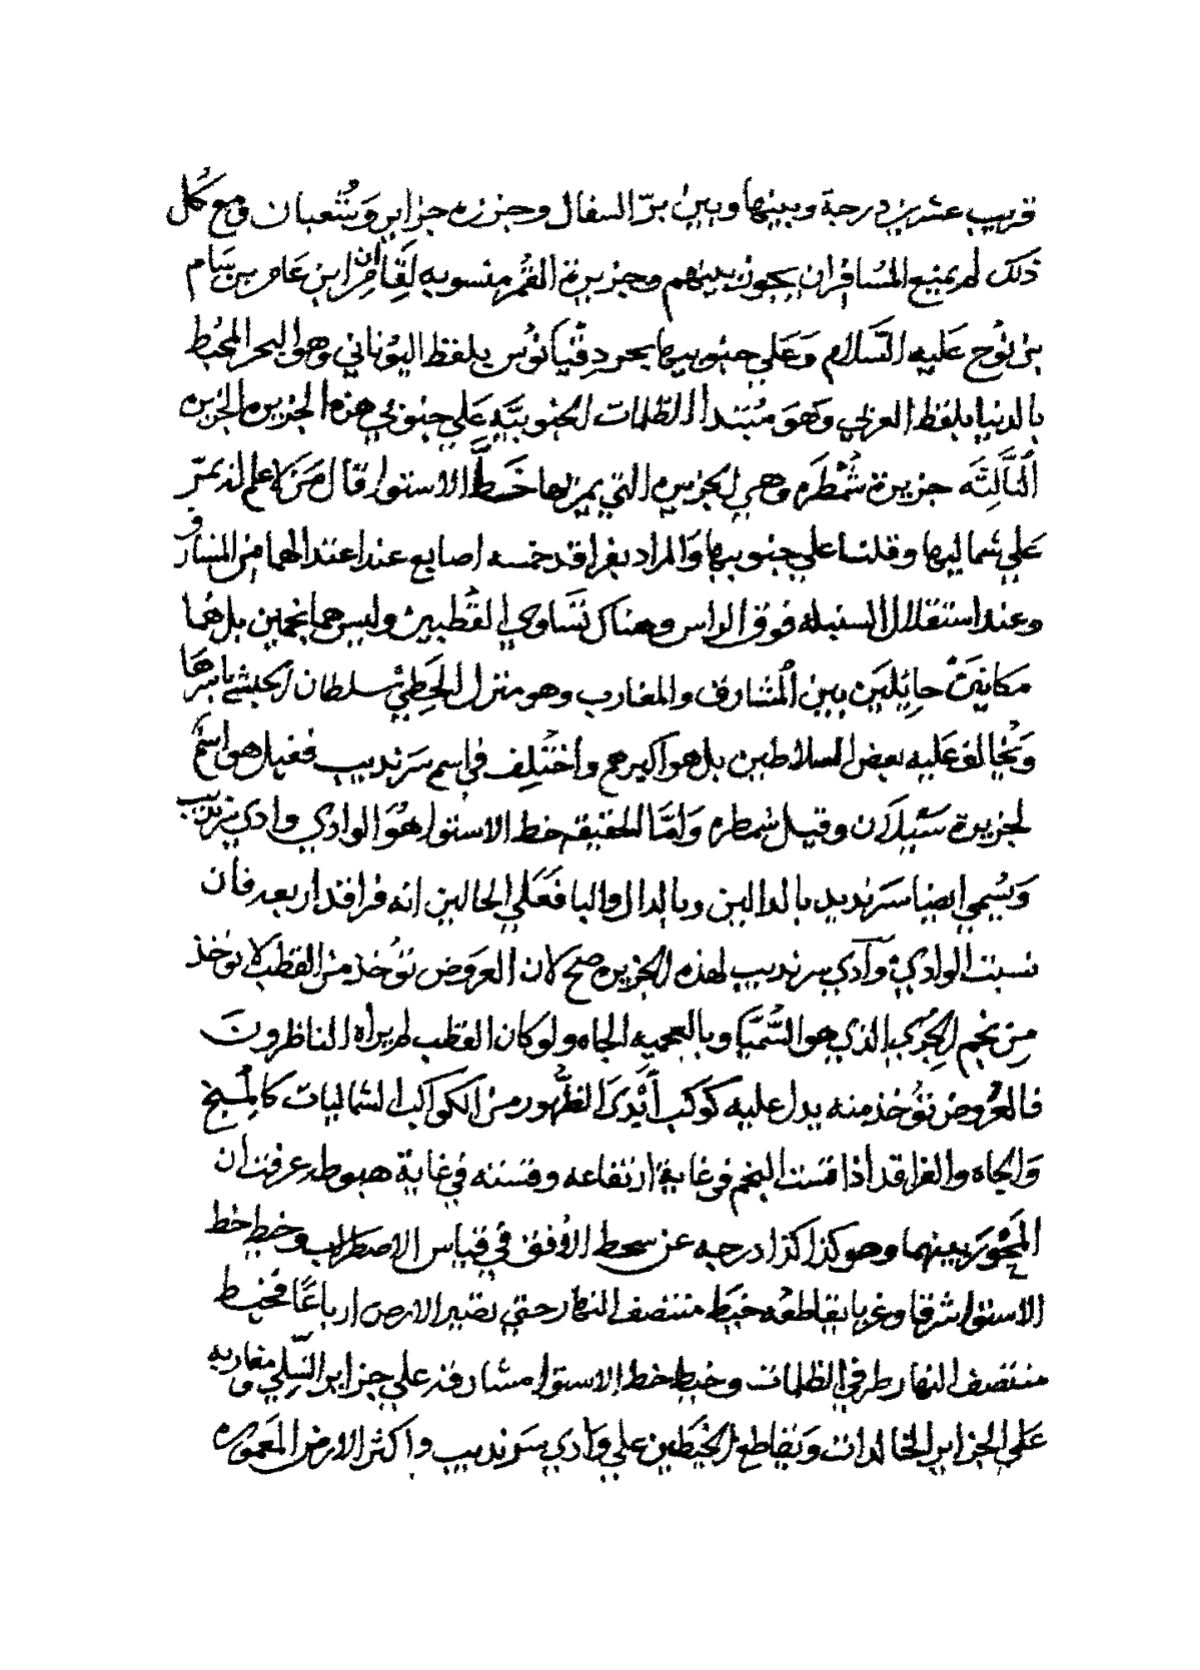 قريب عشرين درجة وبينها وبين برّ السفال وجزره جزاير وشُعبان ومع كُل
ذلك لم يمنع المُسافران يجوز بينهم وجزيرة القُمر منسوبه لقامران ابن عامر بن سام
بن نُوح عَليه السَّلام وَعَلي جنوبيها بحر دقْيانُوس بلفظ اليُوناني وهو البحر المحُيط
بالدنيا بلفظ العربي وَهوَ مُبْتدا الظلمات الجنوبيَّه عَلي جنوبي هذه الجزيره الجزيره
الثَّالِثَه جزيرة شُمُطَره وهي الجزيره التي يمر بها خَطَّ الاستوا قال مَن لا علم له يمرّ
عَلي شماليها وقلنا علي جنوبيها وَالمراد بفراقد خمسه اصابع عند اعتدالهما من المنار
وعند استقلال السنبله فوق الراس وهناك تَتَساوي القُطبين وليس هما نجمين بل هُما
مكانَينْ حايِلَين بين المَشارق والمغارب وهو منزل الحَطِي سلطان الحبشه باسرها
وَيُخالف عَليه بعض السلاطين بل هو اكبرهم واُختُلِف في اسم سَرنديب فقيل هو اسمُ
لجزيرة سَيلَان وقيل شمطره وَامَّا الحقيقه خط الاستوا هُوَ الوادي وادي سرنديب
وَيُسُمي ايضا سَرنديد بالدالين وبالدال والبا فَعَلي الحالين انه فراقد اربعه فان
نسبت الوادي وَادي سرنديب لهذه الجزيره صح لان العروض تُوخذ من القطب لا توخذ
مِن نجم الجُدَي الذي هو السُّمَيَّا وبالعجميه الجاه ولو كان القطب لم يراه الناظرون
فالعُروض تُوخذ منه يدل عليه كَوكَب اَبدَى الظُّهور من الكَواكب الشماليات كالمُِيخ
وَالجاه والفراقد اذا قست النجم في غاية ارتفاعه وقسته في غاية هبوطه عرفت ان
المِحْوَر بينهما وهو كذا كذا درجه عن سحط الاُفق في قياس الاصطرلاب وخيط خط
الاستوا شرقا وغربا يقاطعُه خيَط منتصف النهار حتي تصير الارض ارباعًا فخيط
منتصف النهار طرفي الظلمات وخيط خط الاستوا مشارقه علي جزاير السّيلي ومغاربه
عَلي الجزاير الخالدات وَتقاطع الخَيَطين علي وَادي سَرنديب واكثر الارض المَعموره